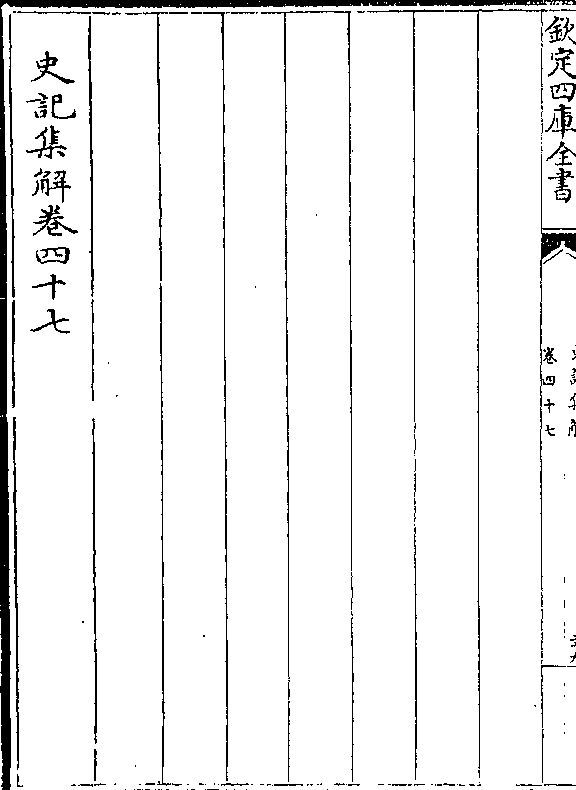 欽定四庫全書
史記集解
卷四十七
史記集解卷四十七